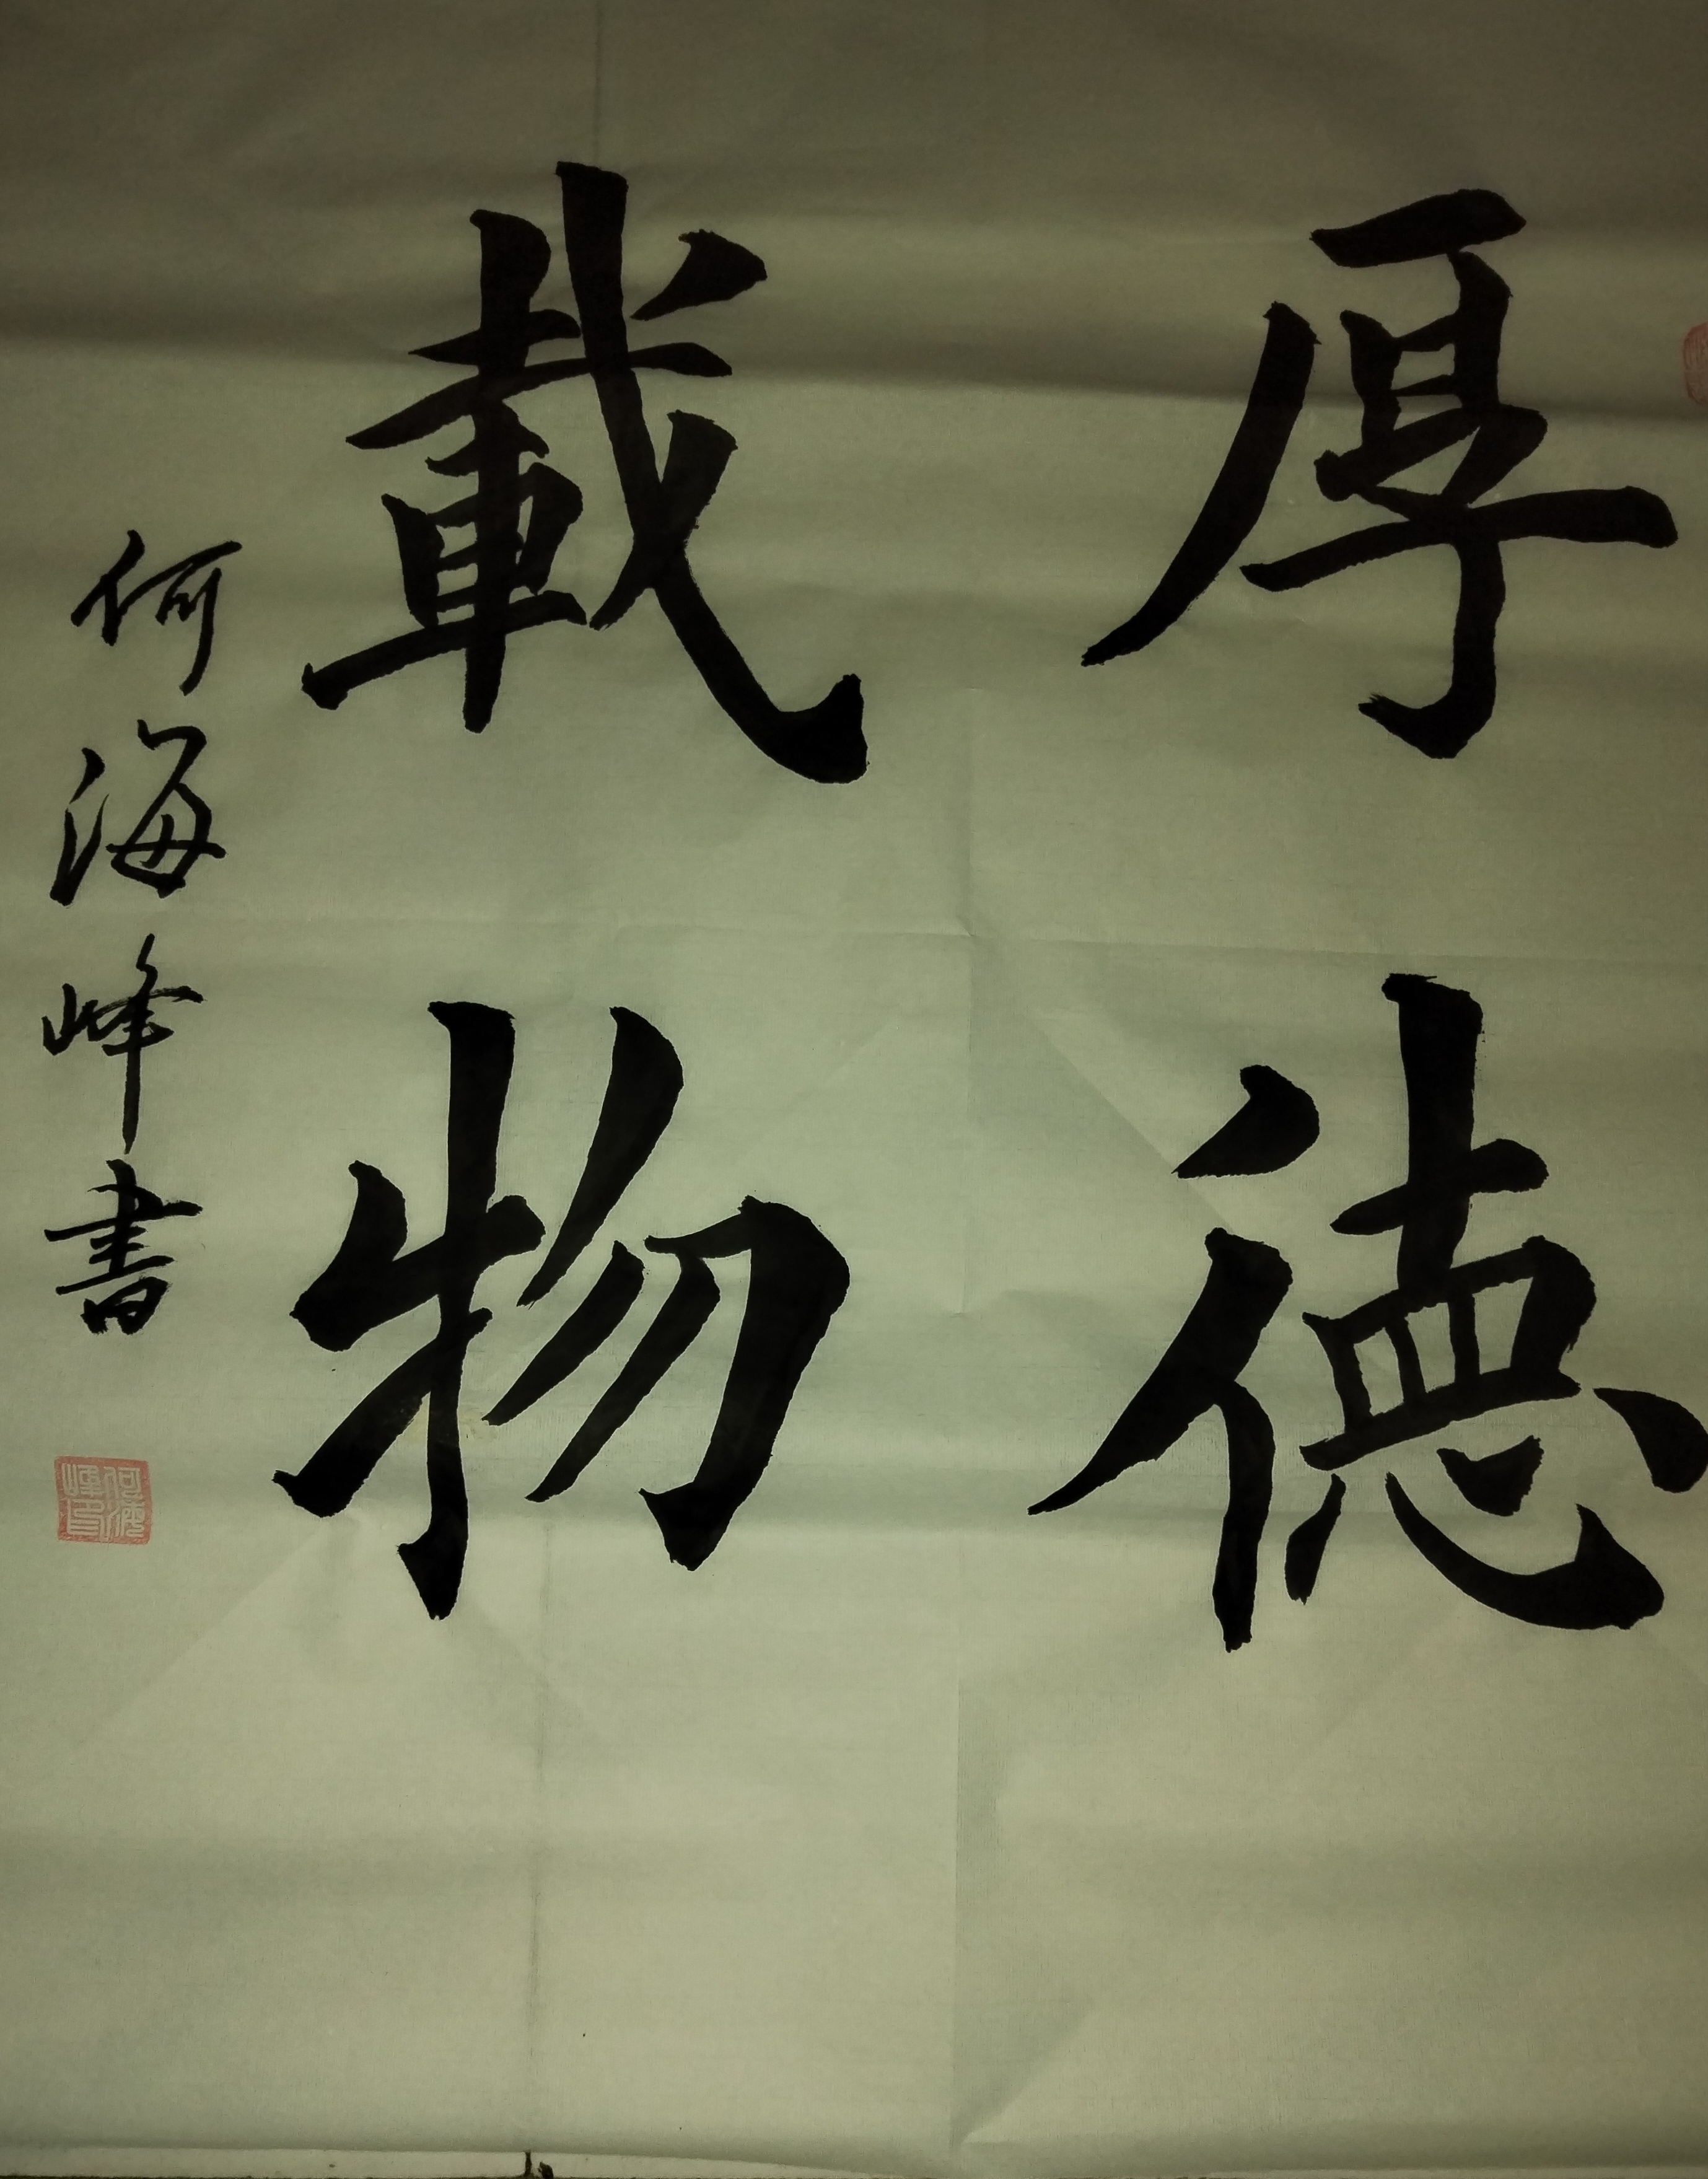 厚德
載物
何海峰書
何海峰印